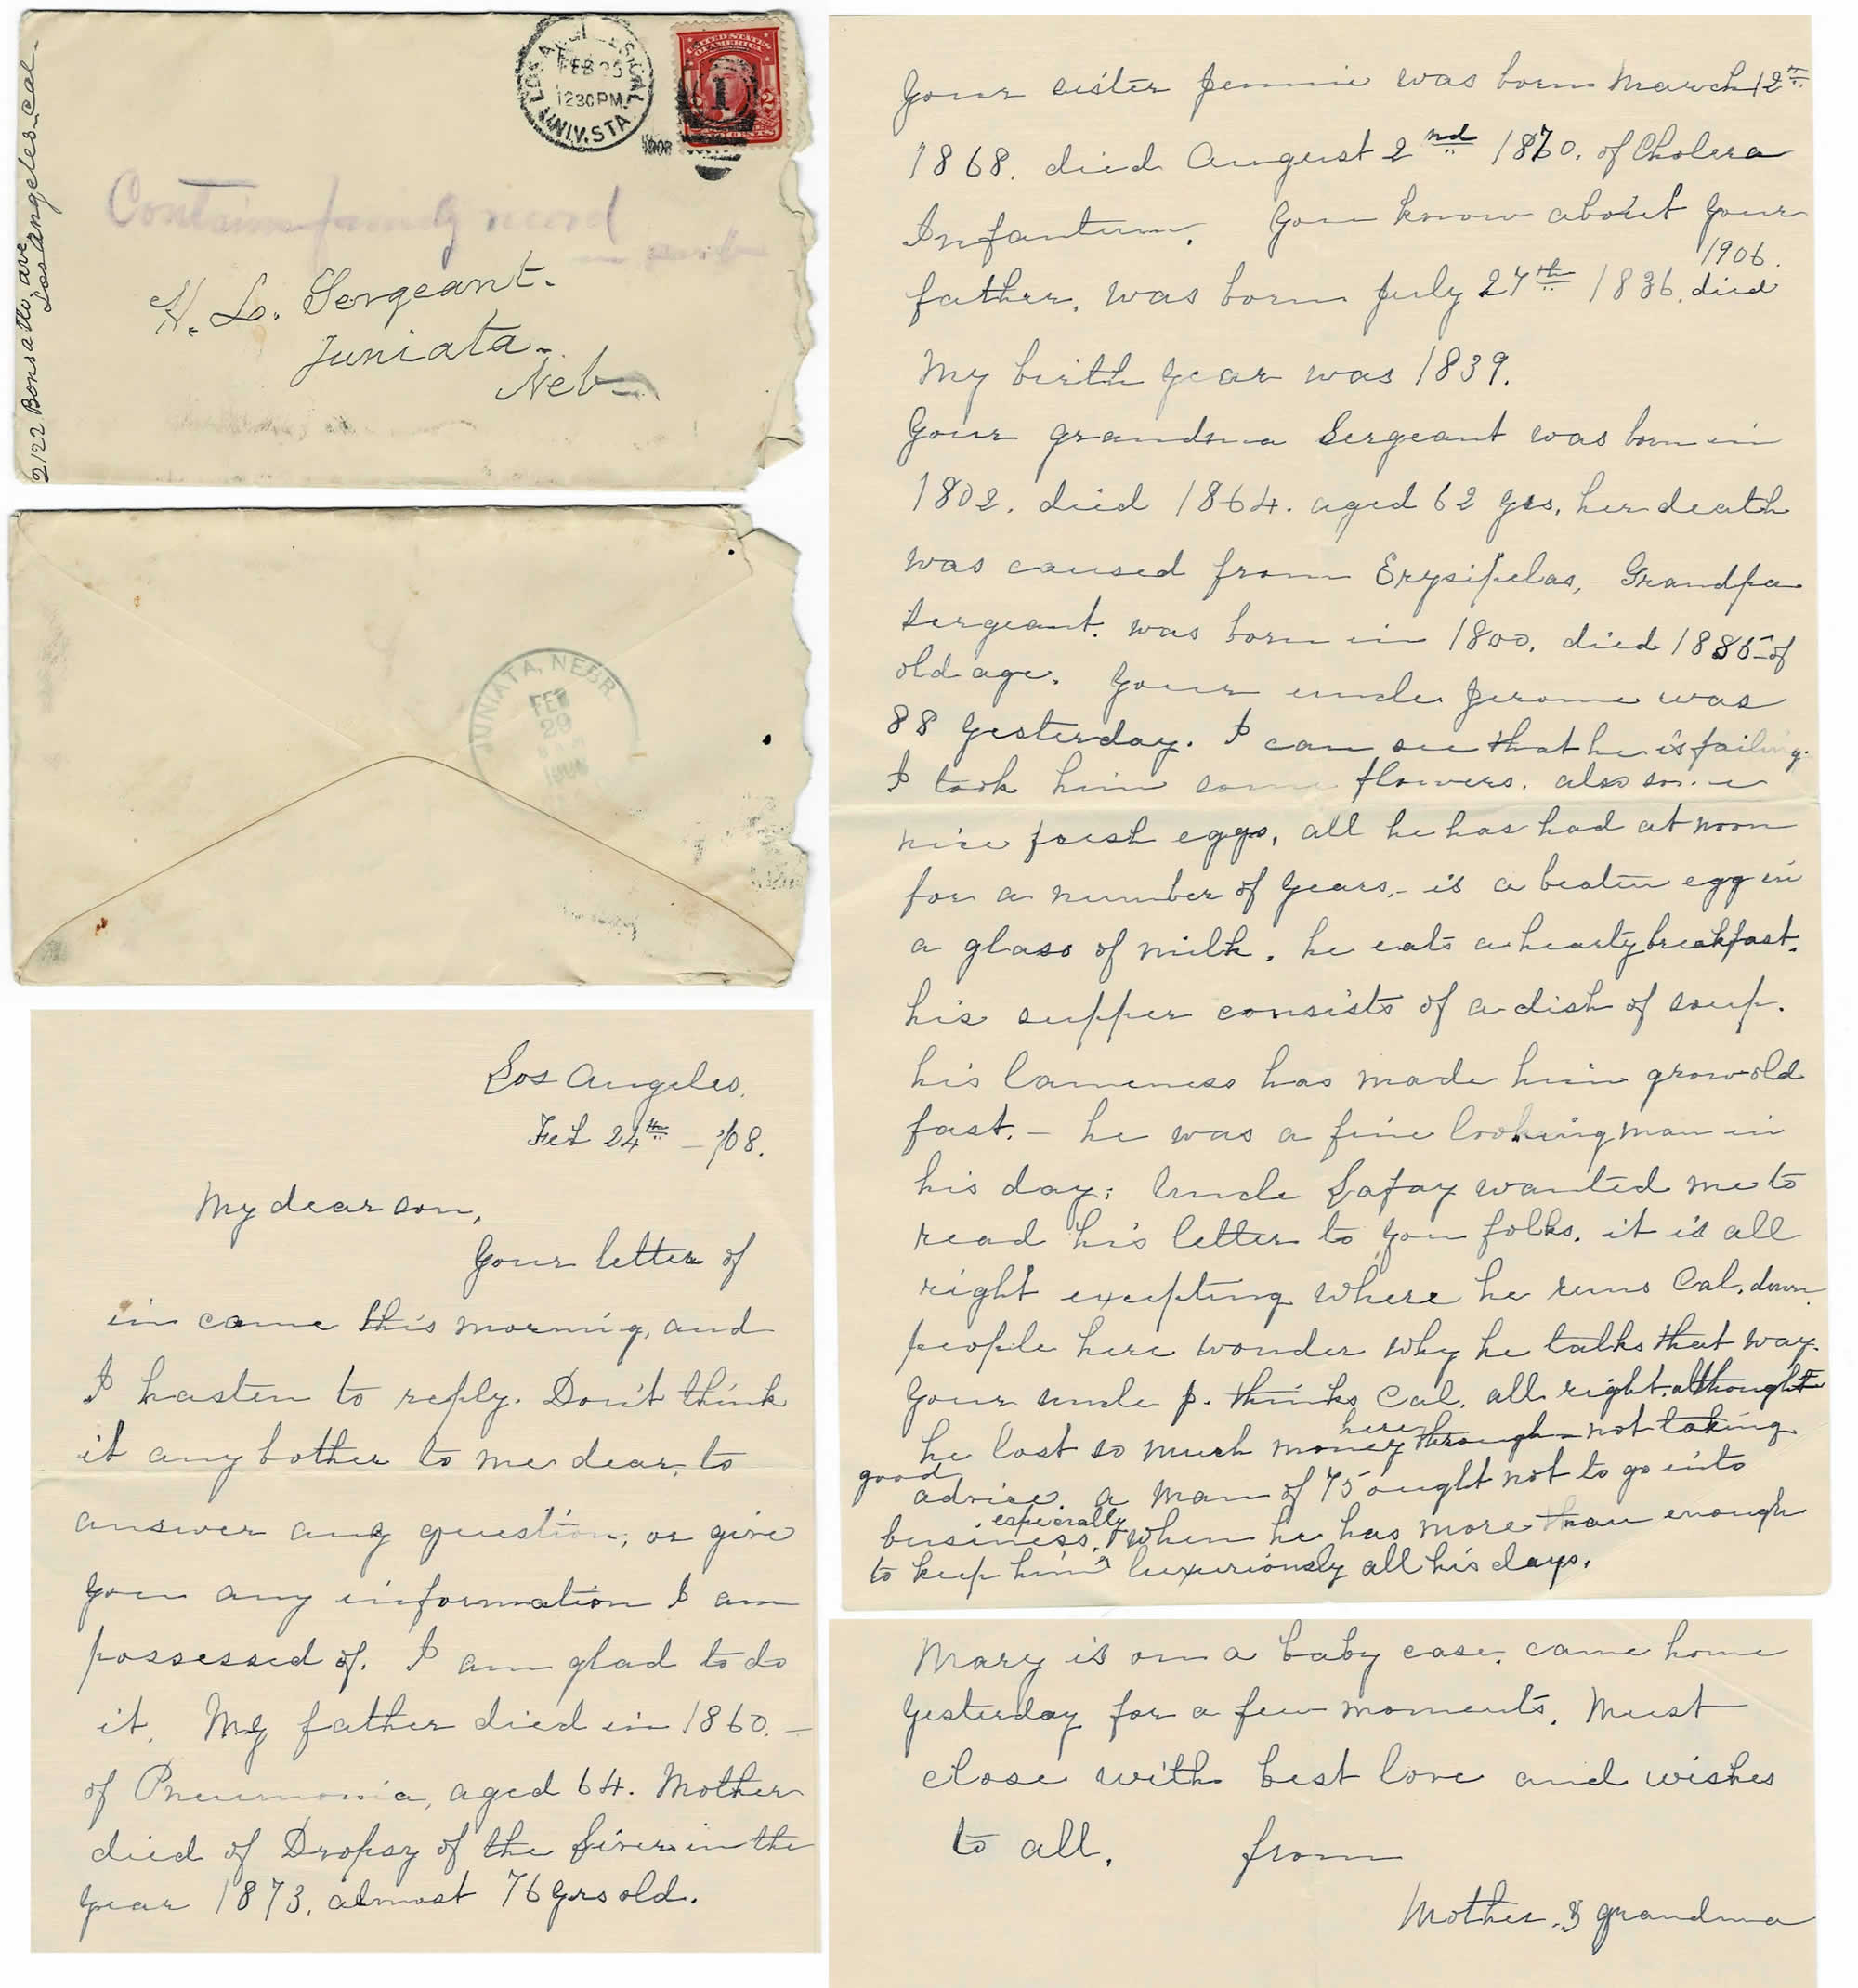 2122 Bonsallo, ave
Los angeles_cal_
LOS ANGELES, CAL.
FEB 25
12 30 PM
1908
UNIV. STA.
UNITED STATES
OF AMERICA
1
2
Contains family record
H. L. Sergeant.
Juniata_
Neb_
JUNIATA, NEBR.
FEB
29
Los Angeles.
Feb 24th - '08.
My dear son,
Your letter of
in came this morning, and
I hasten to reply. Don't think
it any bother to me dear, to
answer any question, or give
you any information I am
possessed of. I am glad to do
it. My father died in 1860. -
of Pneumonia, aged 64. Mother
died of Dropsy of the liver in the
year 1873, almost 76 yrs old.
Your sister Jennie was born March 12th
1868. died August 2nd 1870. of Cholera
Infantum. You know about your
father. was born July 27th 1836. died 1906.
My birth year was 1839.
Your grandma Sergeant was born in
1802. died 1864. aged 62 yrs, her death
was caused from Erysipelas, Grandpa
Sergeant. was born in 1800. died 1885 - of
old age. Your uncle Jerome was
88 yesterday. I can see that he is failing.
I took him some flowers. also some
nice fresh eggs, all he has had at noon
for a number of years. - is a beaten egg in
a glass of milk. he eats a hearty breakfast.
his supper consists of a dish of soup.
his lameness has made him grow old
fast. - he was a fine looking man in
his day; Uncle Lafay wanted me to
read his letter to you folks. it is all
right excepting where he runs Cal. down.
people here wonder why he talks that way.
Your uncle J. thinks Cal. all right. althought
he lost so much money here through - not taking
good advice. a man of 75 ought not to go into
business, especially when he has more than enough
to keep him luxuriously all his days.
Mary is on a baby case. came home
yesterday for a few moments. Must
close with best love and wishes
to all. from
Mother. & grandma